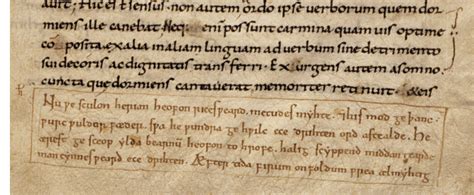 aurt; hic est sensus. non autem ordo ipse verborum quem dor
miens ille canebat. Neq; enim possunt carmina quamuis optime
composita. ex alia in aliam linguam ad verbum sine detrimento
sui decoris ac dignitatis transferri. Exurgens autem a somno.
cuncta que dormiens cantaverat. memoriter retinuit. & eis
Nu þe sculon herian heofon ricesþeard. metudes myhte. ⁊his mod geþanc.
þurc þuldor fæder. sþa he þundra gehþilc ece drihten ord astealde. He
ærest gescop ylda bearnū heofon to hrofe. halig scyppend middangearde
mancynnes þeard ece drihten. Æfter tida firum on foldum frea ælmyhtig